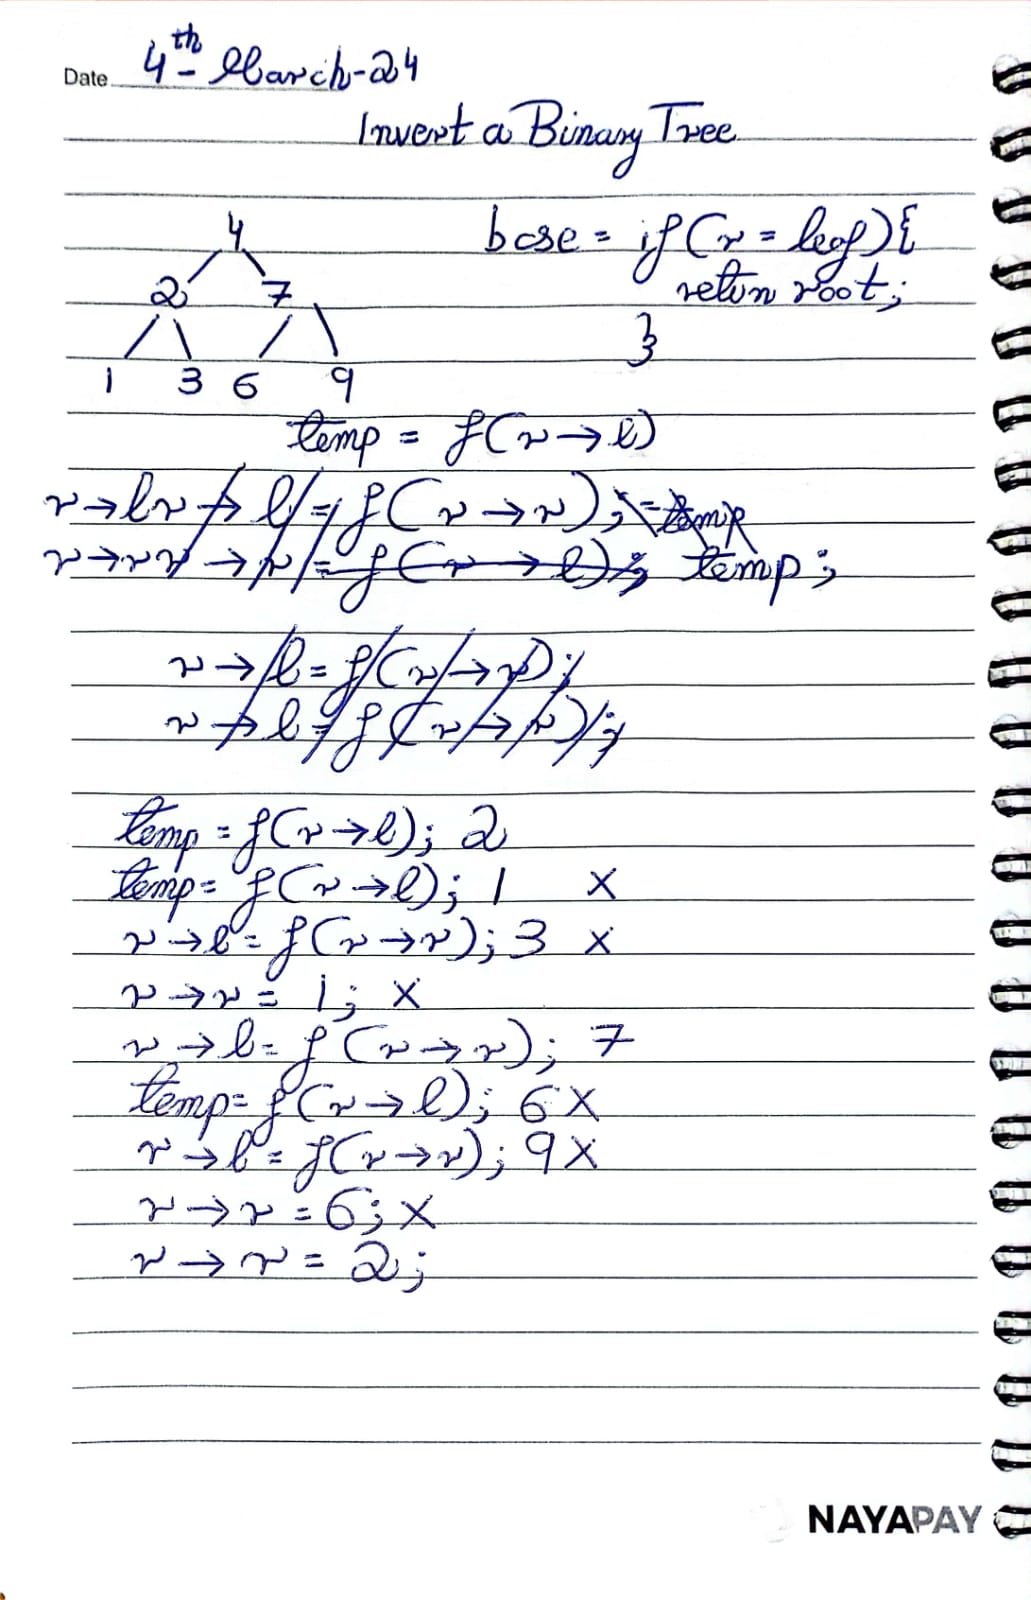 Date 4th - March-24
Invert a Binary Tree
4
2 7
1 3 6 9
base = if (r = leaf) {
retun root;
}
temp = f(r→l)
r→l r→l = f(r→r); = temp
r→r r→r = f(r→l); temp;
r→l = f(r→r);
r→l = f(r→r);
temp = f(r→l); 2
temp = f(r→l); 1 X
r→l = f(r→r); 3 X
r→r = 1; X
r→l = f(r→r); 7
temp = f(r→l); 6 X
r→l = f(r→r); 9 X
r→r = 6; X
r→r = 2;
NAYAPAY